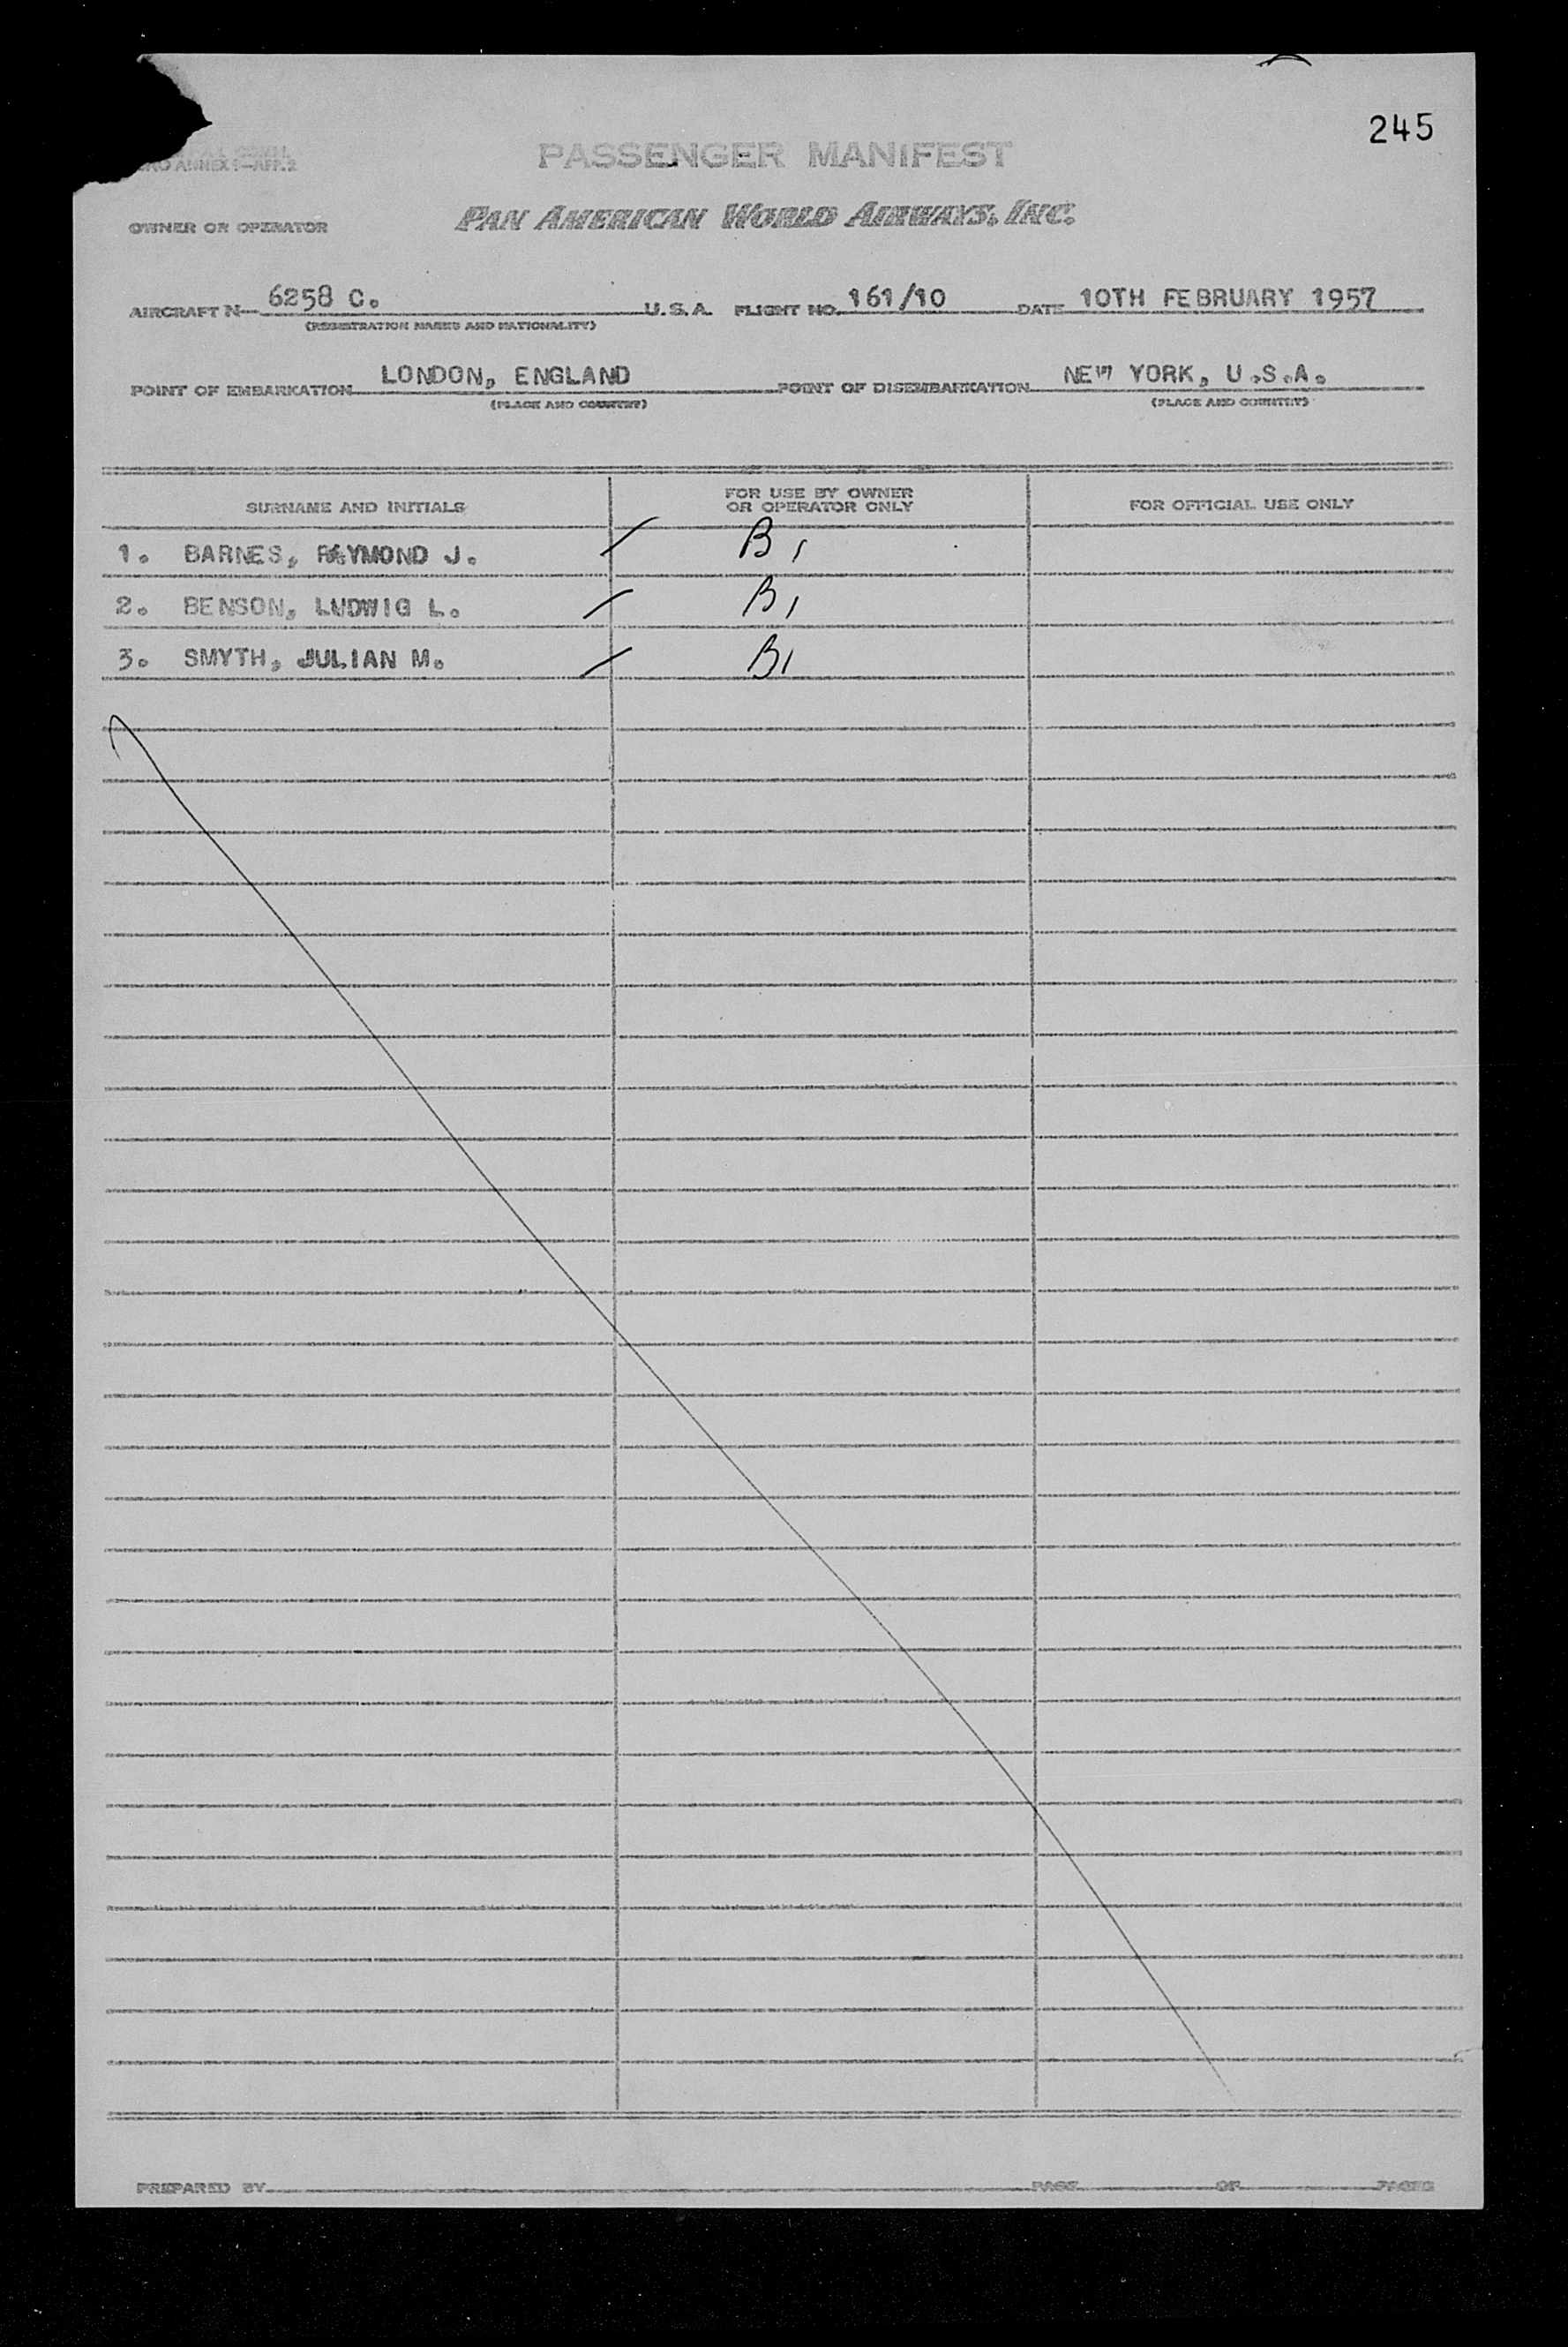 245
ANNEX 9—APP. 2
PASSENGER MANIFEST
OWNER OR OPERATOR PAN AMERICAN WORLD AIRWAYS, INC.
AIRCRAFT N— 6258 C. U.S.A. FLIGHT NO. 161/10 DATE 10TH FEBRUARY 1957
(REGISTRATION MARKS AND NATIONALITY)
POINT OF EMBARKATION LONDON, ENGLAND POINT OF DISEMBARKATION NEW YORK, U.S.A.
(PLACE AND COUNTRY) (PLACE AND COUNTRY)
SURNAME AND INITIALS
FOR USE BY OWNER
OR OPERATOR ONLY
FOR OFFICIAL USE ONLY
1. BARNES, RAYMOND J. B1
2. BENSON, LUDWIG L. B1
3. SMYTH, JULIAN M. B1
PREPARED BY PAGE OF PAGES